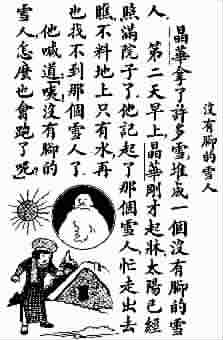 沒有腳的雪人
晶華拿了許多雪,堆成一個沒有腳的雪
人.
第二天早上,晶華剛才起牀,太陽已經
照滿院子了.他記起了那個雪人,忙走出去
瞧,不料地上只有水,再
也找不到那個雪人了.
他喊道:咦,沒有腳的
雪人,怎麼也會跑了呢?